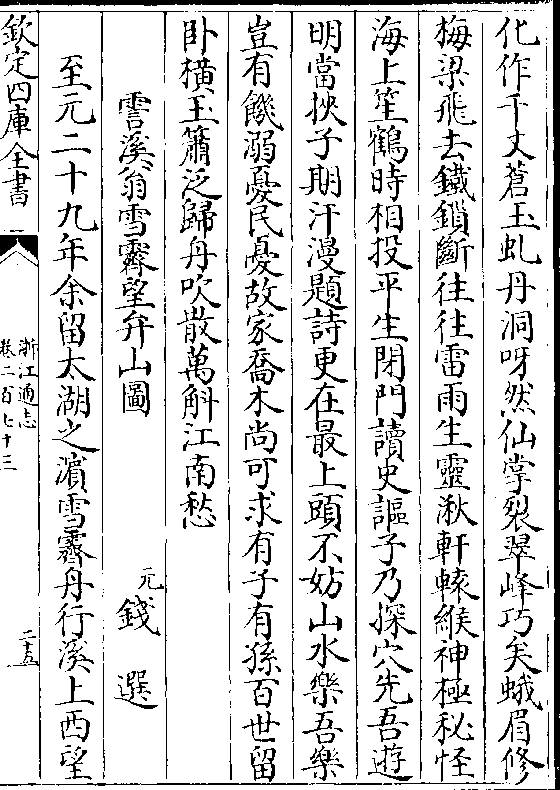 化作千丈蒼玉虬丹洞呀然仙掌裂翠峰巧矣蛾眉修
梅梁飛去鐵鎖斷往往雷雨生靈湫軒轅緱神極秘怪
海上笙鶴時相投平生閉門讀史謳子乃探穴先吾遊
明當挾子期汗漫題詩更在最上頭不妨山水樂吾樂
豈有饑溺憂民憂故家喬木尚可求有子有孫百世留
卧橫玉簫泛歸舟吹散萬斛江南愁
霅溪翁雪霽望弁山圖
元錢選
至元二十九年余留太湖之濵雪霽舟行溪上西望
欽定四庫全書
浙江通志
卷二百七十三
二十五